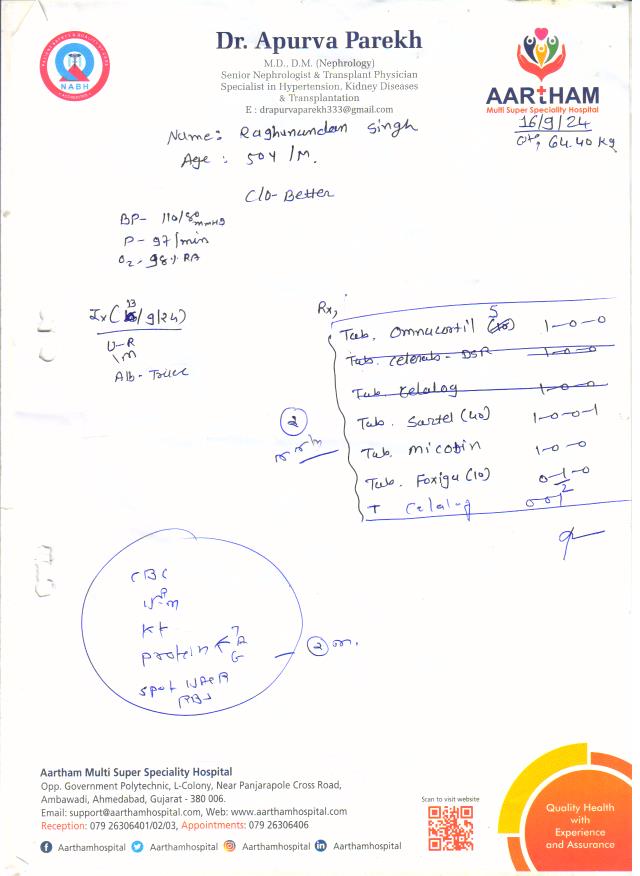 Dr. Apurva Parekh
M.D., D.M. (Nephrology)
Senior Nephrologist & Transplant Physician
Specialist in Hypertension, Kidney Diseases
& Transplantation
E : drapurvaparekh333@gmail.com
NABH
AARTHAM
Multi Super Speciality Hospital
16/9/24
64.40 kg
Name: Raghunandan Singh
Age : 50Y/M.
C/O- Better
BP- 110/80 mmHg
P- 97/min
O2- 98% RA
Ix (13/9/24)
U-R
Alb-
Rx,
Tab. Omnacortil 5 1-0-0
Tab. DSR 1-0-0
Tab. Celalog 1-0-0
Tab. Sartel (40) 1-0-0-1
Tab. 1-0-0
Tab. Foxiga (10) 0-1-0
2
T Celalog 001
2
CBC
protein
2 m.
spot
RBS
Aartham Multi Super Speciality Hospital
Opp. Government Polytechnic, L-Colony, Near Panjarapole Cross Road,
Ambawadi, Ahmedabad, Gujarat - 380 006.
Email: support@aarthamhospital.com, Web: www.aarthamhospital.com
Reception: 079 26306401/02/03, Appointments: 079 26306406
Aarthamhospital Aarthamhospital Aarthamhospital Aarthamhospital
Scan to visit website
Quality Health
with
Experience
and Assurance